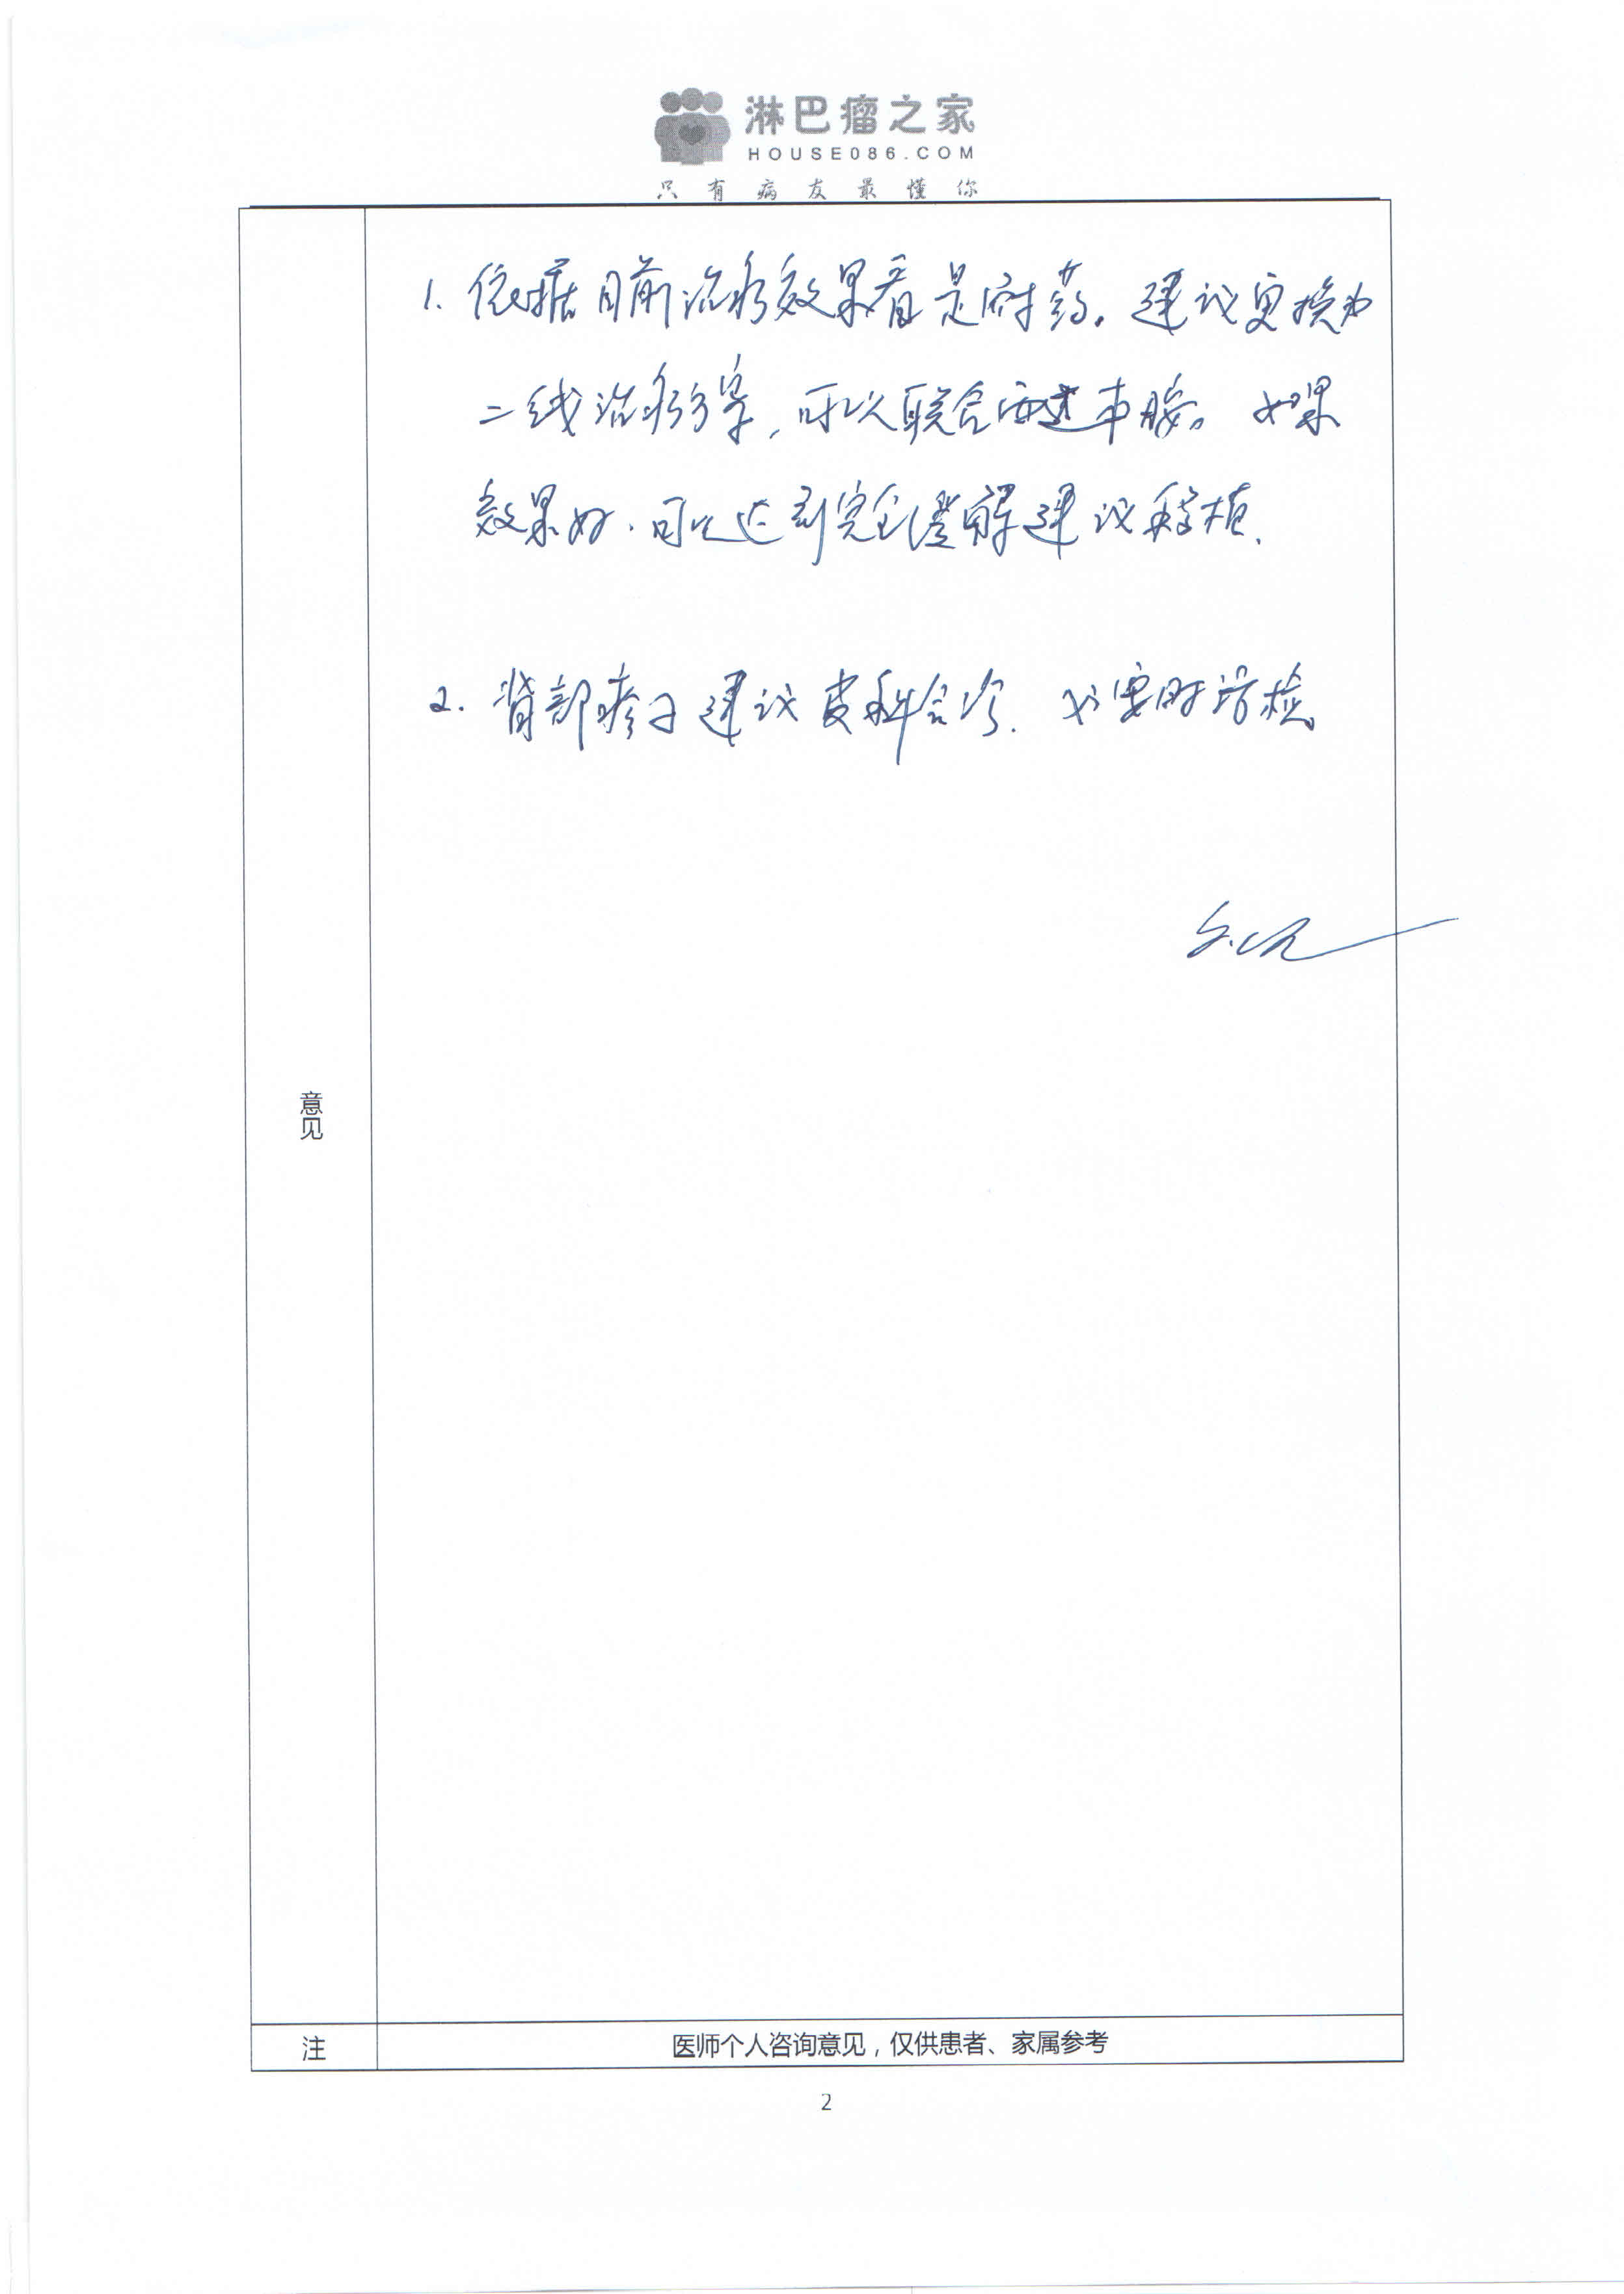 淋巴瘤之家
HOUSE086.COM
只有病友最懂你
1. 依据目前治疗效果看是耐药。建议更换为
二线治疗方案,可以联合西达本胺。如果
效果好.可以达到完全缓解建议移植.
2. 背部疹子建议皮科会诊.必要时活检。
意见
注
医师个人咨询意见,仅供患者、家属参考
2